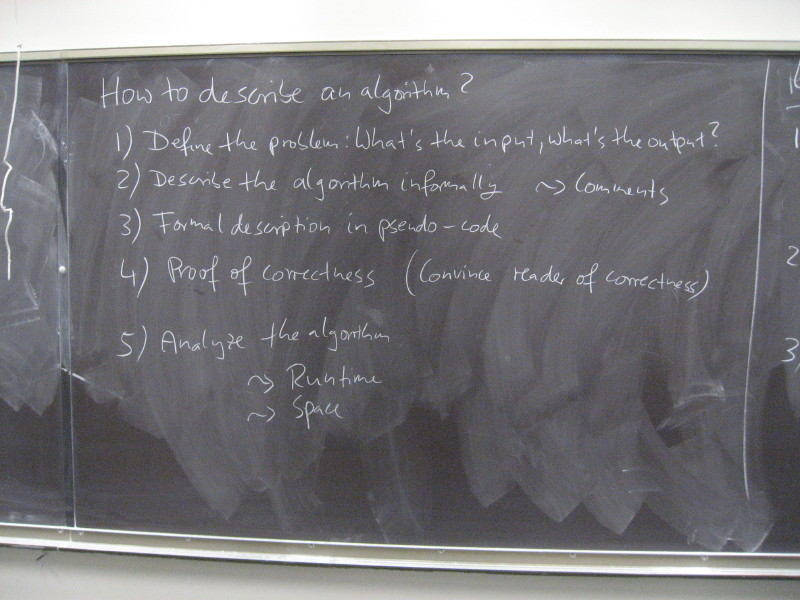 How to describe an algorithm?
1) Define the problem: What's the input, what's the output?
2) Describe the algorithm informally ~> Comments
3) Formal description in pseudo-code
4) Proof of correctness (Convince reader of correctness)
5) Analyze the algorithm
~> Runtime
~> Space
1
2
3)